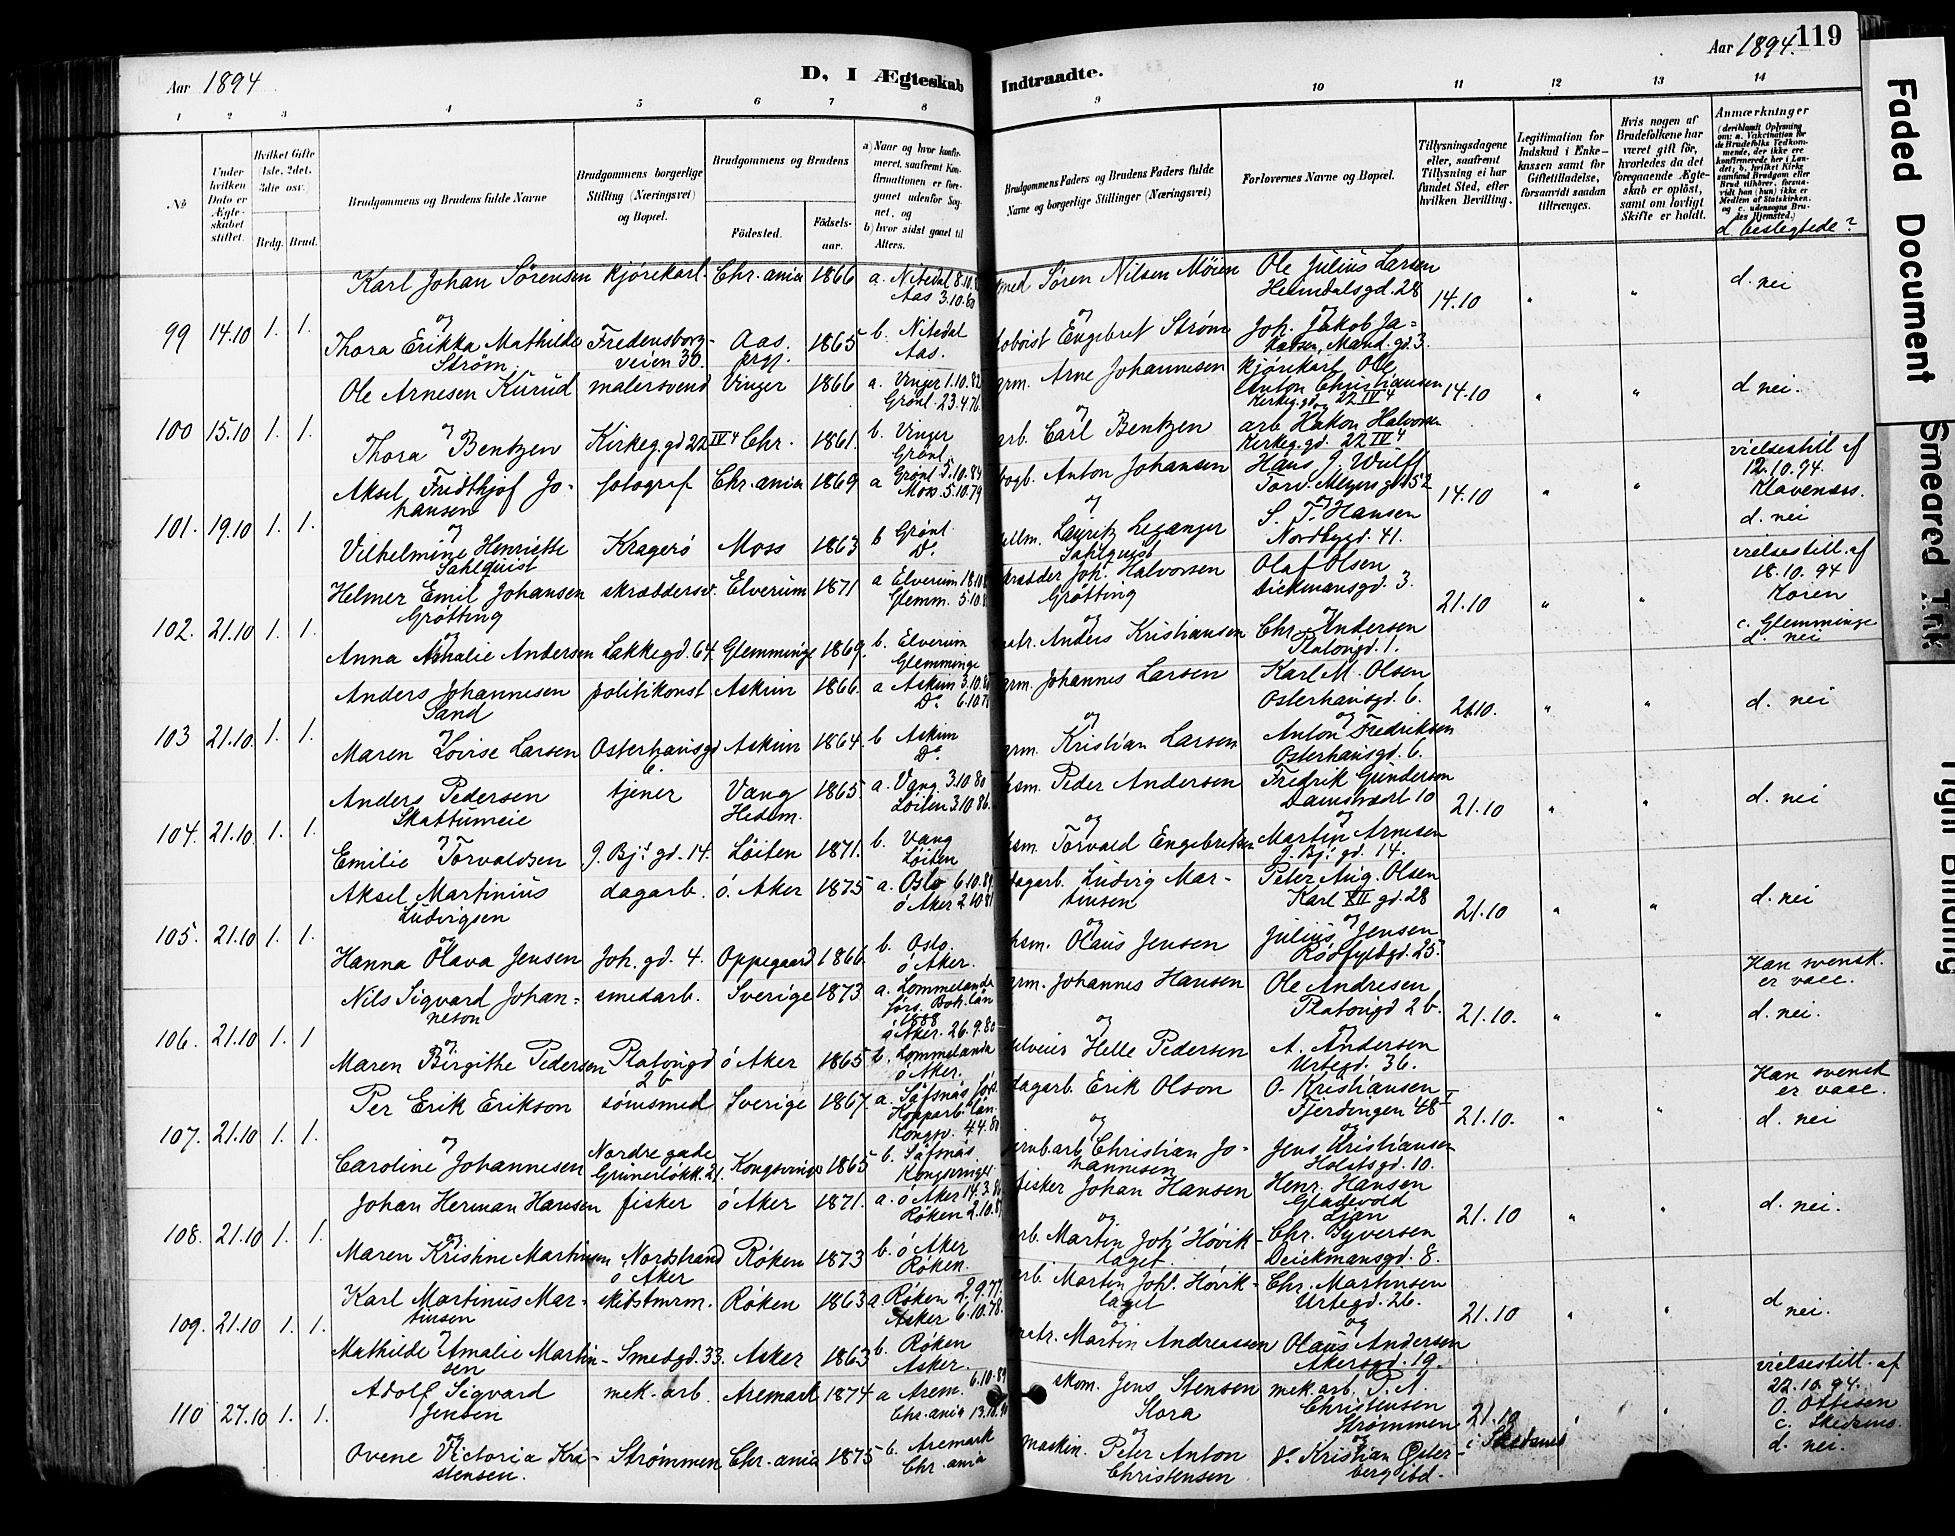 Aar 1894
D, I Ægteskab Indtraadte.
Aar 1894. 119
1 2 3 4 5 6 7 8 9 10 11 12 13 14
No
Under hvilken Dato er Ægteskabet stiftet.
Hvilket Gifte 1ste, 2det, 3die osv.
Brdg. Brud.
Brudgommens og Brudens fulde Navne
Brudgommens borgerlige Stilling (Næringsvei) og Bopæl.
Brudgommens og Brudens
Fødested.
Fødselsaar.
a) Naar og hvor konfirmeret, saafremt Konfirmationen er foregaaet udenfor Sognet, og
b) hvor sidst gaaet til Alters.
Brudgommens Faders og Brudens Faders fulde Navne og borgerlige Stillinger (Næringsvei)
Forlovernes Navne og Bopæl.
Tillysningsdagene eller, saafremt Tillysning ei har fundet Sted, efter hvilken Bevilling.
Legitimation for Indskud i Enkekassen samt for Giftetilladelse, forsaavidt saadan tiltrænges.
Hvis nogen af Brudefolkene har været gift før, hvorledes da det foregaaende Ægteskab er opløst, samt om lovligt Skifte er holdt.
Anmærkninger
d. beslegtede?
99 14.10 1. 1.
Karl Johan Sörensen kjörekarl. Chr.ania 1866 a. Nitedal 8.10
Aas 3.10.80
Sören Nilsen Möien Ole Julius Larsen
Heimdalsgd. 28 14.10 " " d. nei
og
Thora Erikka Mathilde Strøm Fredensborgveien 30. Aas prgj. 1865 b. Nitedal
Aas.
Engebret Ström Joh. Jakob Jakobsen, Mand. gd. 3.
100 15.10 1. 1.
Ole Arnesen Kurud malersvend Vinger 1866 a. Vinger 1.10.82
Grönl. 23.4.76
grm. Arne Johannesen kjörekarl Ole
Anton Christiansen
Kirkeg.gd. 22 IV 4 14.10 " " d. nei.
og
Thora Bentzen Kirkeg.gd 22 IV 4 Chr. 1861. b. Vinger
Grönl.
arb. Carl Bentzen arb. Hakon Halvorsen
Kirkeg.gd. 22 IV 4
101. 19.10 1. 1.
Aksel Fridthjof Johansen fotograf Chr.ania 1869 a Grönl 5.10.84
Moss. 5.10.79
bogb. Anton Johansen Hans J. Wulff
Torv. Meyersgd 52 14.10 " "
vielsestill af
12.10.94.
Klavenæss.
d. nei
og
Vilhelmine Henriette Sahlquist Kragerö Moss 1863 b Grönl.
Do.
Lauritz Leganger Sahlquist S. T. Hansen
Nordbygd. 41.
102. 21.10 1. 1.
Helmer Emil Johansen Grötting skræddersv. Elverum 1871 a Elverum 18.10
Glemm. 5.10
skrædder Joh. Halvorsen Grötting Olaf Olsen
Dickmansgd. 3. 21.10 " "
vielsestill. af
18.10.94
Koren
c. Glemminge
d. nei
og
Anna Amalie Andersen Lakkegd. 64. Glemminge 1869. b. Elverum
Glemminge
matr. Anders Kristiansen Chr. Andersen
Platougd. 1.
103 21.10. 1. 1.
Anders Johannesen Sand politikonst Askim 1866. a Askim 3.10
Do. 6.10.
grm. Johannes Larsen Karl M. Olsen
Osterhausgd. 6. 21.10. " " d. nei
og
Maren Lovise Larsen Osterhausgd 6 Askim 1864. b Askim
Do.
grm. Kristian Larsen Anton Fredriksen
Osterhausgd. 6.
104. 21.10. 1. 1.
Anders Pedersen Skattumeie tjener Vang Hedem. 1865. a. Vang. 3.10.80
Löiten 3.10.86.
hsm. Peder Andersen Fredrik Gundersen
Damstræt 10 21.10 " " d. nei
og
Emilie Torvaldsen J. Bj.s gd. 14. Löiten 1871. b. Vang
Löiten
hsm. Torvald Engebretsen Martin Arnesen
J. Bj.s gd. 14.
105. 21.10 1. 1.
Aksel Martinius Ludvigsen dagarb. ö. Aker 1875 a. Oslo 6.10.89
ö Aker 2.10.81
dagarb. Ludvig Martinsen Peter Aug. Olsen
Karl XII gd. 28 21.10 " " d. nei
og
Hanna Olava Jensen Joh. gd. 4. Oppegaard 1866 b. Oslo.
ö Aker.
hsm. Olaus Jensen Julius Jensen
Rödfyldgd. 25.
106. 21.10 1. 1
Nils Sigvard Johanneson smedarb. Sverige 1873 a. Lommelanda
förs. Boh. län
1888
ö Aker. 26.9.80
grm. Johannes Hansen Ole Andresen
Platougd 2 b. 21.10. " "
Han svensk.
er vacc.
d. nei.
og
Maren Birgithe Pedersen Platougd 2 b ö Aker 1865 b. Lommelanda
ö Aker.
Helle Pedersen A. Andersen
Urtegd. 36.
107. 21.10 1. 1.
Per Erik Erikson sömsmed Sverige 1867. a. Säfsnäs förs.
Kopparb. län.
Kongsv. 4.4.80
dagarb. Erik Olson O. Kristiansen
Fjerdingen 48 I 21.10. " "
Han svensk
er vacc.
d. nei
og
Caroline Johannesen Nordre gade Grünerløkk. 21. Kongsvinger 1865 b. Säfsnäs.
Kongsvinger
jernbarb. Christian Johannesen Jens Kristiansen
Holstsgd. 10.
108. 21.10 1. 1.
Johan Herman Hansen fisker ö Aker 1871. a. ö Aker 14.3.86
Röken 2.10.87
fisker Johan Hansen Henr. Hansen
Gladvold
Ljan 21.10 " " d. nei.
og
Maren Kristine Martinsen Nordstrand ö Aker Röken 1873 b. ö Aker
Röken.
arb. Martin Joh. Hövik- laget. Chr. Syversen
Deickmansgd. 8.
109. 21.10 1. 1.
Karl Martinus Martinsen skibstmrm. Röken 1863 a. Röken 2.9.77.
Asker 6.10.78.
arb. Martin Joh. Hövik- laget Chr. Martinsen
Urtegd. 26. 21.10 " " d nei.
og
Mathilde Amalie Martinsen Smedgd. 33. Asker 1863 b. Röken
Asker.
matr. Martin Andreassen Olaus Andersen
Akersgd. 19.
110 27.10 1. 1.
Adolf Sigvard Jensen mek. arb. Aremark 1874 a Arem. 6.10.89
Chr.ania 13.10.
skom. Jens Stensen Stora mek.arb. P. A.
Christensen
Strømmen 21.10
i Skedsmo " "
vielsestill. af
22.10.94.
O. Ottesen
c. Skedsmo
d. nei.
og
Ovene Victoria Kristensen. Strømmen Chr.ania 1875 b. Aremark
Chr.ania
maskin. Peter Anton Christensen Do. Kristian Østerberg ibd.
Faded Document
Smeared Ink
Tight Binding